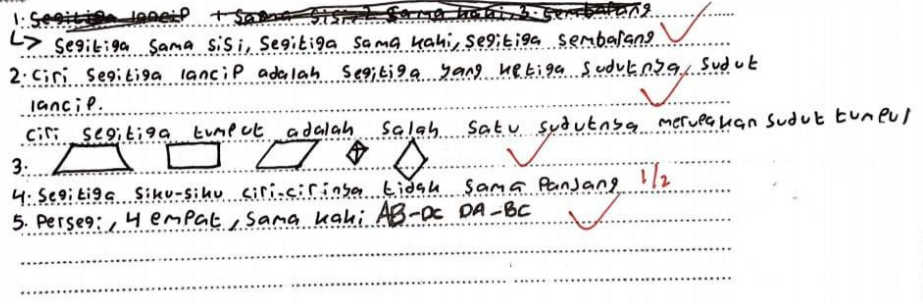 1. Segitiga lancip + Sama sisi, 2. Sama kaki, 3. Sembarang
↳ Segitiga sama sisi, segitiga sama kaki, segitiga sembarang
2. Ciri segitiga lancip adalah segitiga yang ketiga sudutnya sudut
lancip.
ciri segitiga tumput adalah salah satu sudutnya merupakan sudut tumpul
3.
4. Segitiga siku-siku ciri-cirinya tidak sama panjang 1/2
5. Persegi, 4 empat, sama kaki AB-DC DA-BC